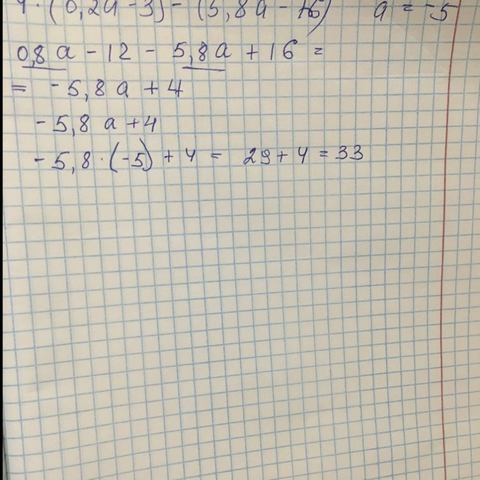 4 · (0,2a - 3) - (5,8a - 16) a = -5
0,8a - 12 - 5,8a + 16 =
= -5,8a + 4
-5,8a + 4
-5,8 · (-5) + 4 = 29 + 4 = 33